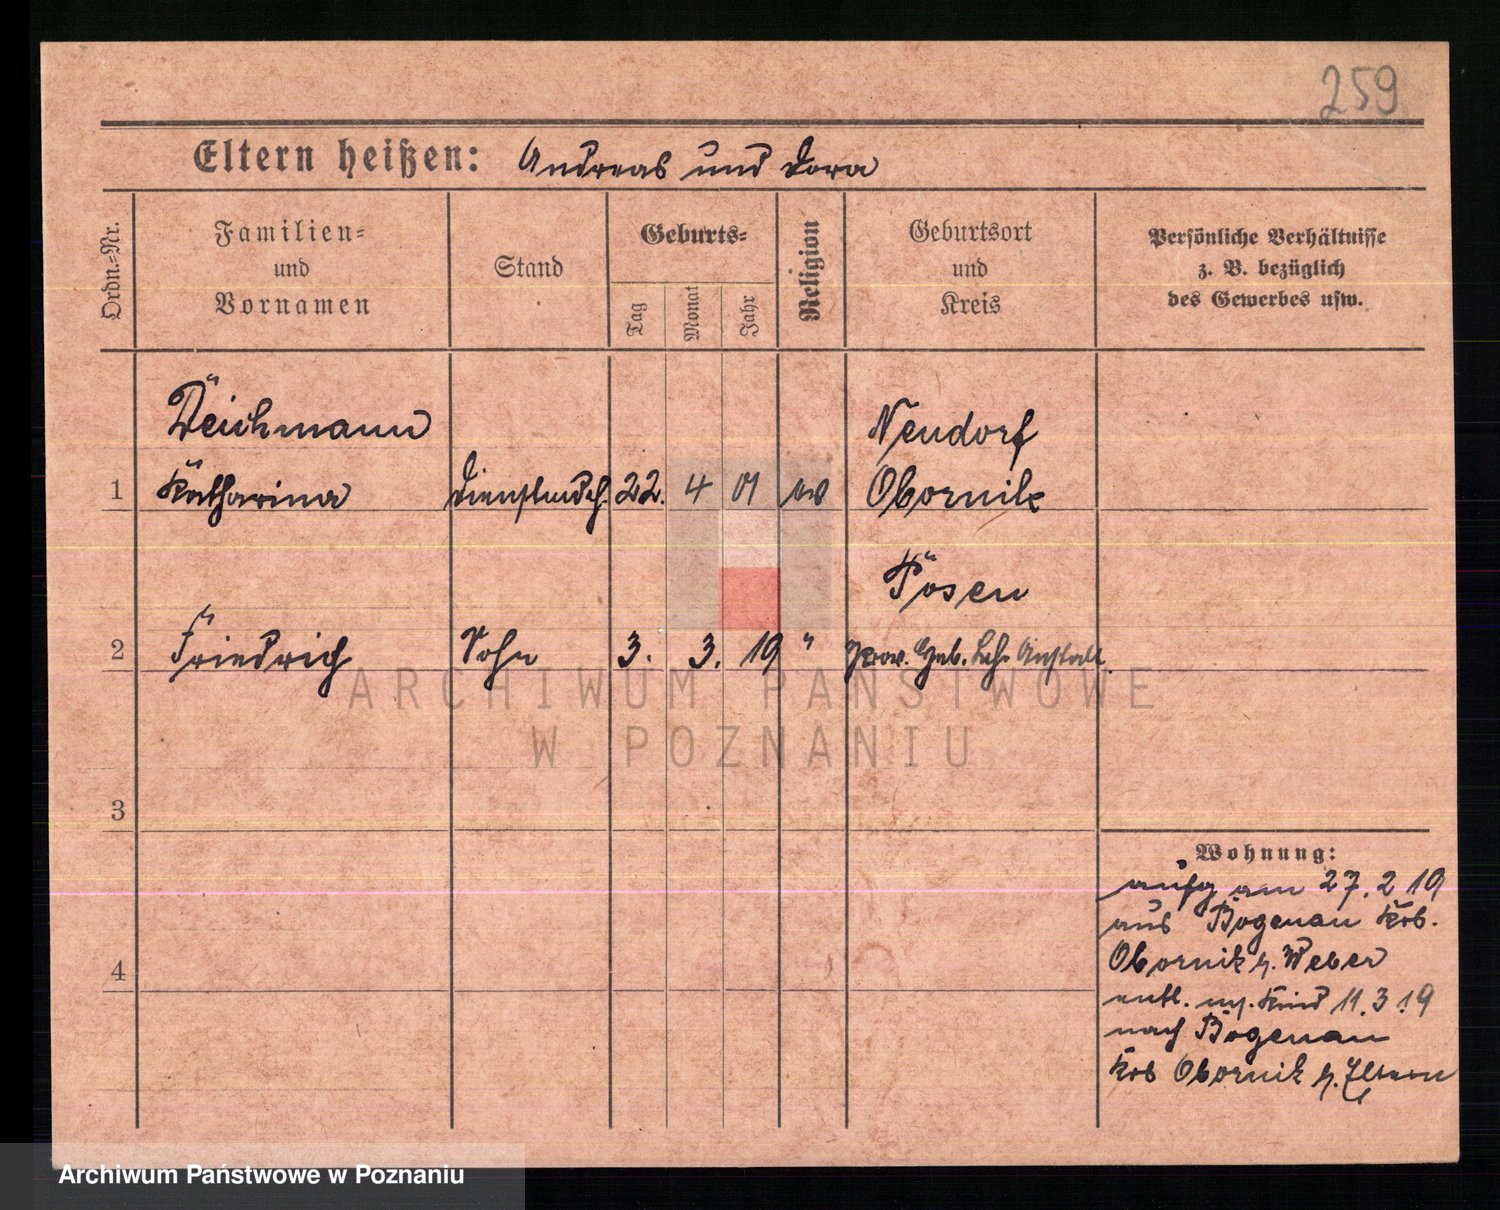 259
Eltern heißen: Andreas und Dora
Ordn.-Nr.
Familien-
und
Vornamen
Stand
Geburts-
Tag
Monat
Jahr
Religion
Geburtsort
und
Kreis
Persönliche Verhältnisse
z. B. bezüglich
des Gewerbes usw.
Deichmann
Neudorf
1 Katharina Dienstmdch. 22. 4 01 ev Obornik
Posen
2 Friedrich Sohn 3. 3. 19 " Prov. Heb. Lehr Anstalt.
3
4
Wohnung:
aufg am 27.2 19
aus Bogenau Krs.
Obornik b. Weber
entl. m. Kind 11.3.19
nach Bogenau
Krs Obornik z. Eltern
ARCHIWUM PAŃSTWOWE
W POZNANIU
Archiwum Państwowe w Poznaniu